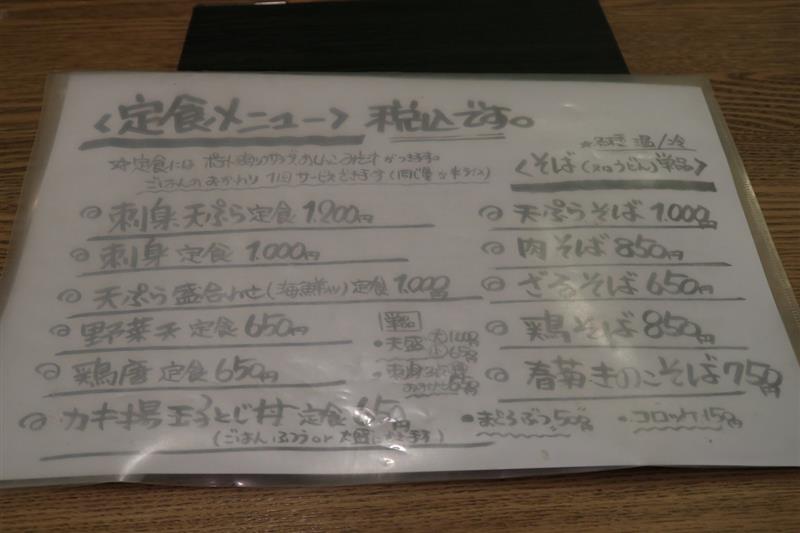 <定食メニュー> 税込です。
☆定食には
ごはんのおかわり 1回 サービスできます
刺身天ぷら定食 1.200円
刺身定食 1.000円
天ぷら盛合わせ(海鮮入り)定食 1.000円
野菜天定食 650円
鶏唐定食 650円
カキ揚玉子とじ丼定食 650円
(ごはんふつう or 大盛
単品
・天盛
温/冷
<そば(又はうどん)単品>
天ぷらそば 1.000円
肉そば 850円
ざるそば 650円
鶏そば 850円
春菊きのこそば 750円
・まぐろぶつ
・コロッケ 150円